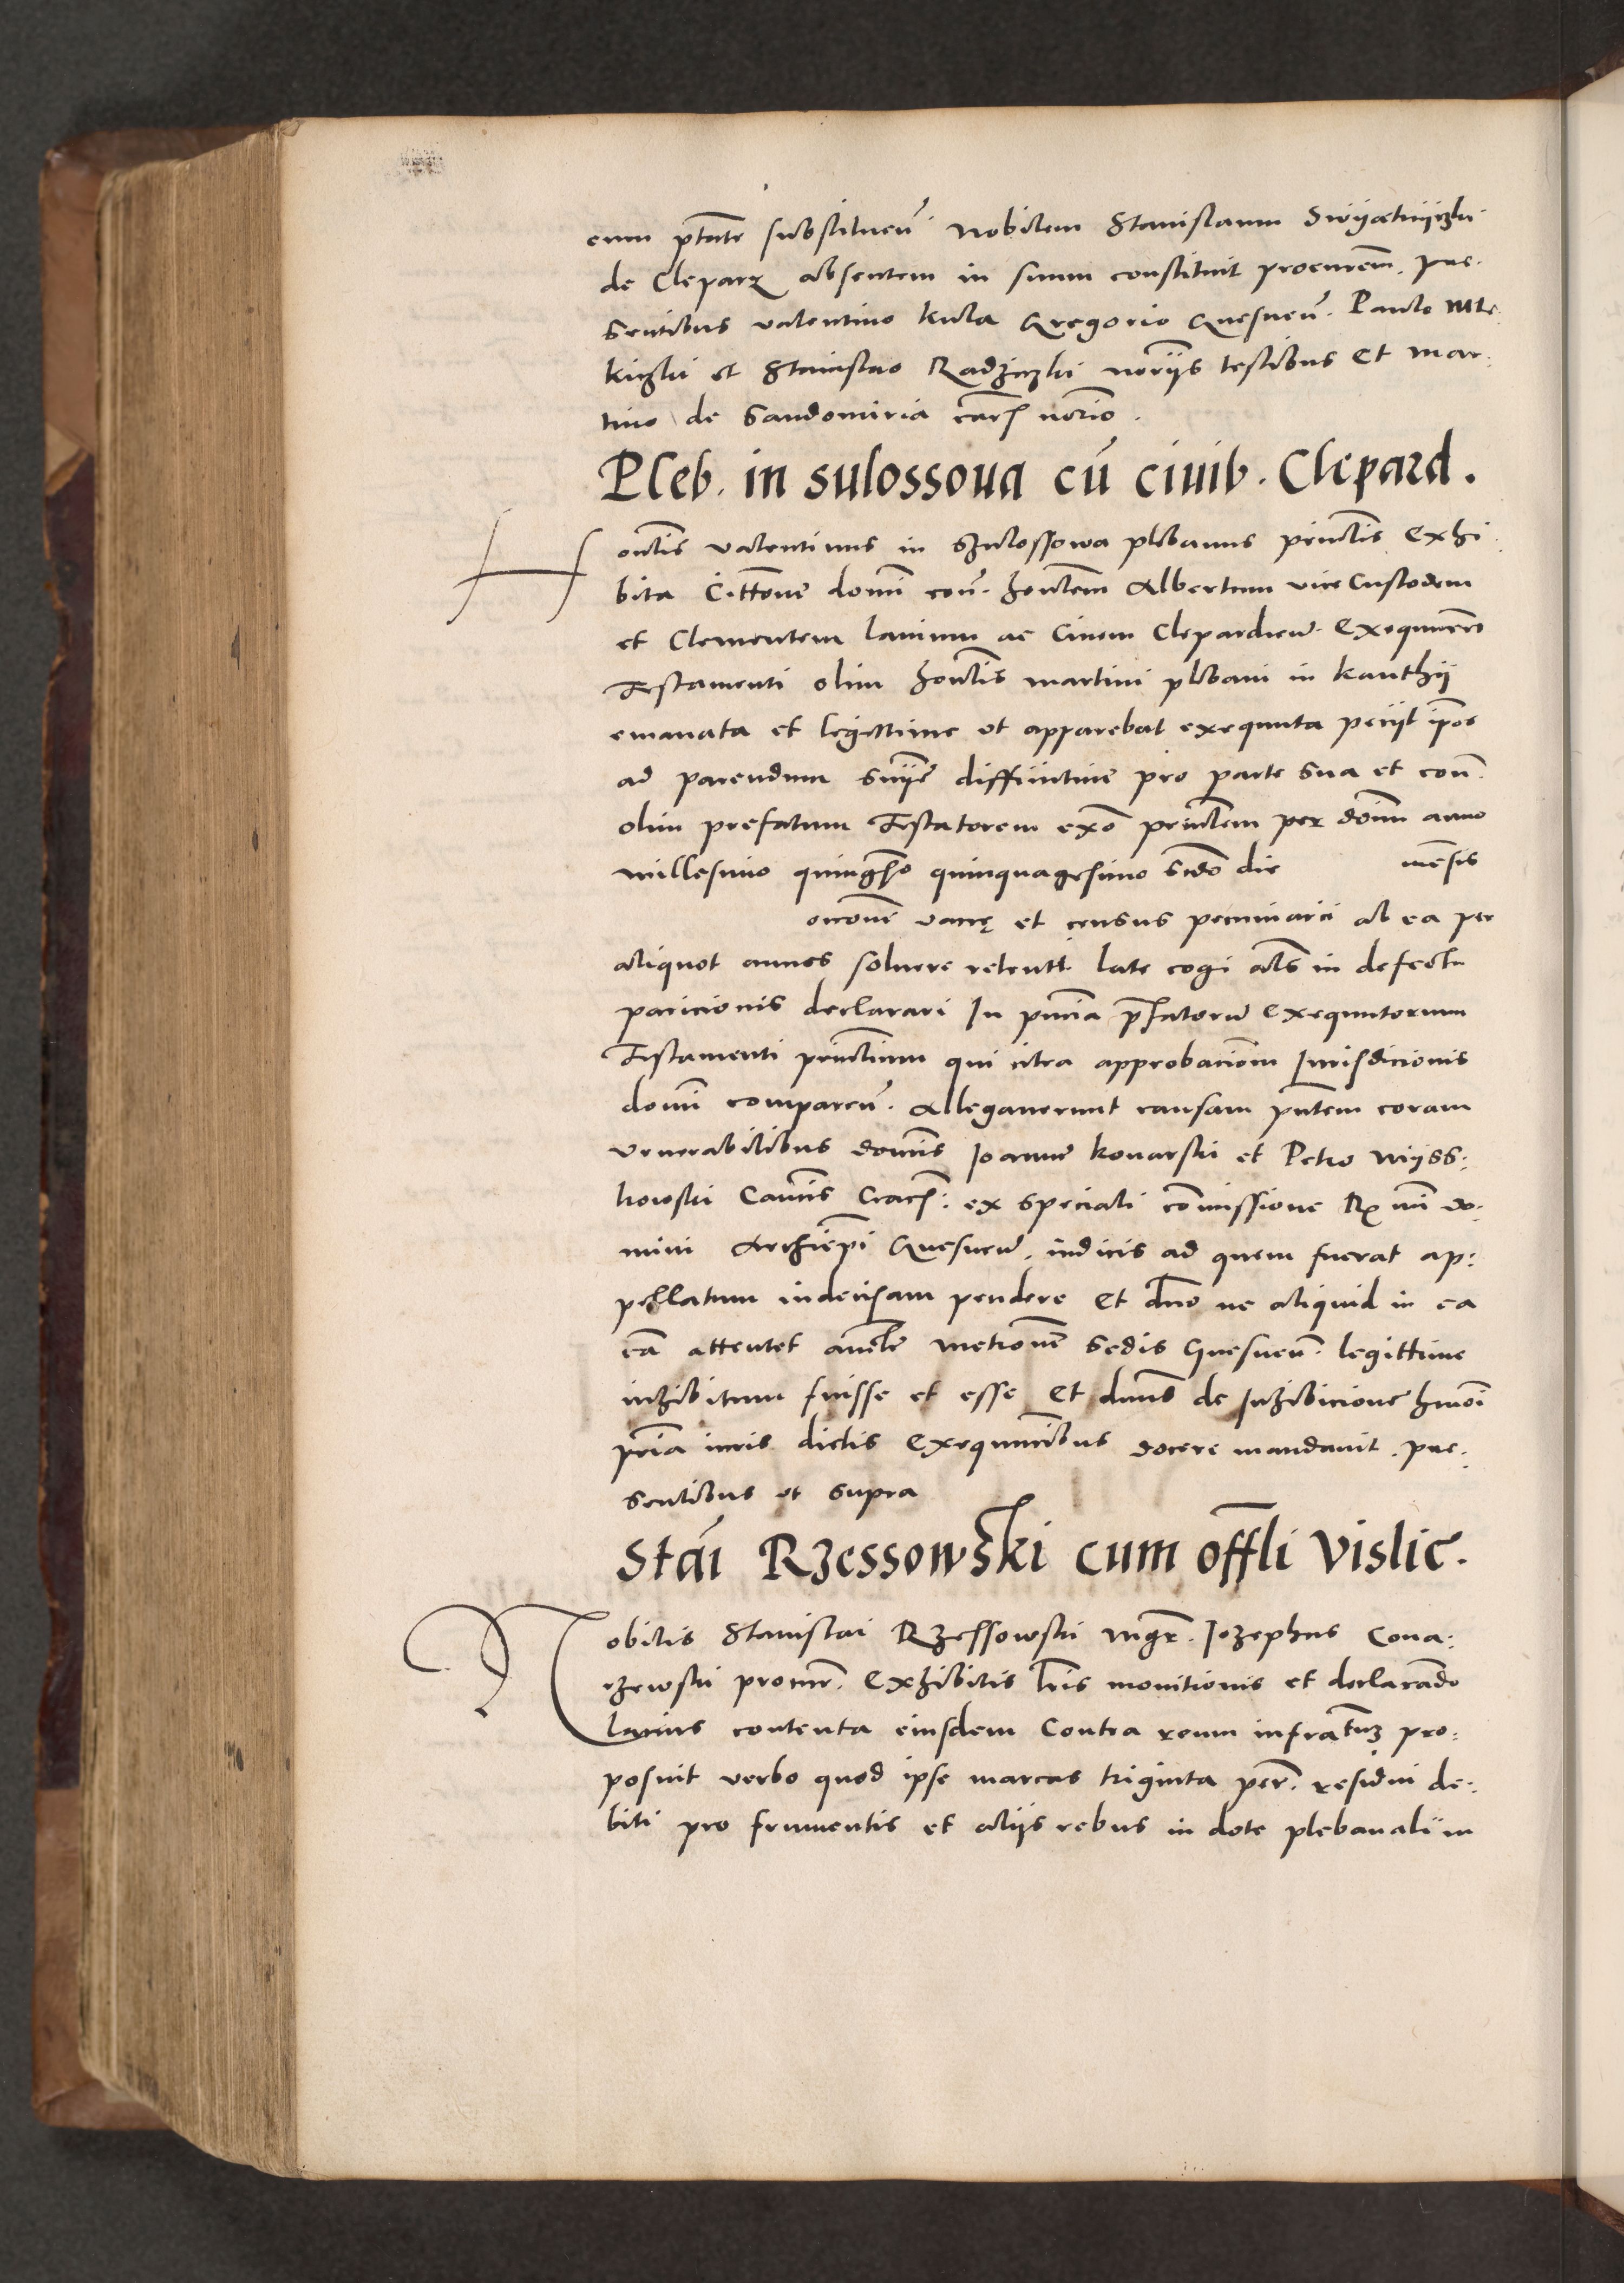 eum ptāte substitueñ nobilem Stanislaum
de Cleparz absentem in suum constituit procurem̄. pre-
sentibus valentino kula Gregorio Gnesneñ. Paulo Mle-
kiczki et Stanislao Radziczki norijs testibus et mar-
tino de Sandomiria norio.
Pleb. in Sulossova cū civib. Clepard.
Honlis valentinus in Szulossowa plebanus princlis Exhi-
bita Cittone domī con. honlem Albertum viceCustodem
et Clementem lanium ac Civem Clepardieñ. Exequutores
Testamenti olim honlis martini plebani in kanthij
emanata et legittime ut apparebat exequuta petijt ipos
ad parendum snije diffinitive pro parte sua et con
olim prefatum Testatorem exō princlem per donm anno
millesimo quingsō quinquagesimo scdo die mēsis
oronē vacce et census pecuniarii ab ea per
aliquot annos solvere retentt. late cogi als in defectu
paricionis declarari In pnnia pfatoru Exequutorum
Testamenti princlium qui citra approbacionm Iurisdicionis
domī compareñ. Allegaverunt causam pntem coram
venerabilibus dominis Joanne konarski et Petro Mijss-
kowski Canōis Crac: ex speciali cōmissione Rx mi do-
mini Archiepi Gnesneñ. iudicis ad quem fuerat ap-
pellatum indecisam pendere Et dno ne aliquid in ea
cā attentet auctte metrone Sedis Gnesneñ. legittime
inhibitum fuisse et esse Et dnus de Inhibicione hmōi
pria iuris dictis Exequutoribus docere mandavit. pre-
sentibus ut supra
Stāi Rzessowski cum offli Vislic.
Nobilis Stanislai Rzessowski mgr. Jozephus Cona-
rzewski procur. Exhibitis lris monitionis et declarando
lacius contenta eiusdem Contra reum infratuz pro-
posuit verbo quod ipse marcas triginta per. residui de-
biti pro frumentis et alijs rebus in dote plebanali in